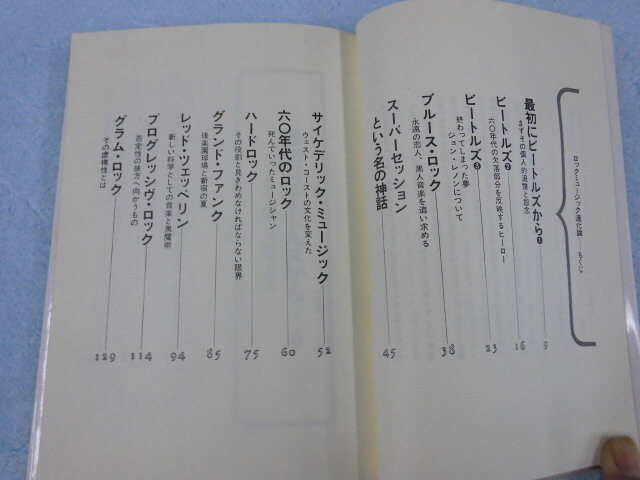 ロックミュージック進化論 もくじ
最初にビートルズから❶
まずその個人的追憶と怨念
9
ビートルズ❷
六〇年代の欠落部分を反映するヒーロー
16
ビートルズ❸
終わってしまった夢
ジョン・レノンについて
23
ブルース・ロック
永遠の恋人、黒人音楽を追い求める
38
スーパーセッション
という名の神話
45
サイケデリック・ミュージック
ウェスト・コーストの文化を変えた
52
六〇年代のロック
死んでいったミュージシャン
60
ハードロック
その役割と見きわめなければならない限界
75
グランド・ファンク
後楽園球場と新宿の夏
85
レッド・ツェッペリン
新しい科学としての音楽と黒魔術
94
プログレッシヴ・ロック
否定性の彼方へ向かうもの
114
グラム・ロック
その虚構性とは
129